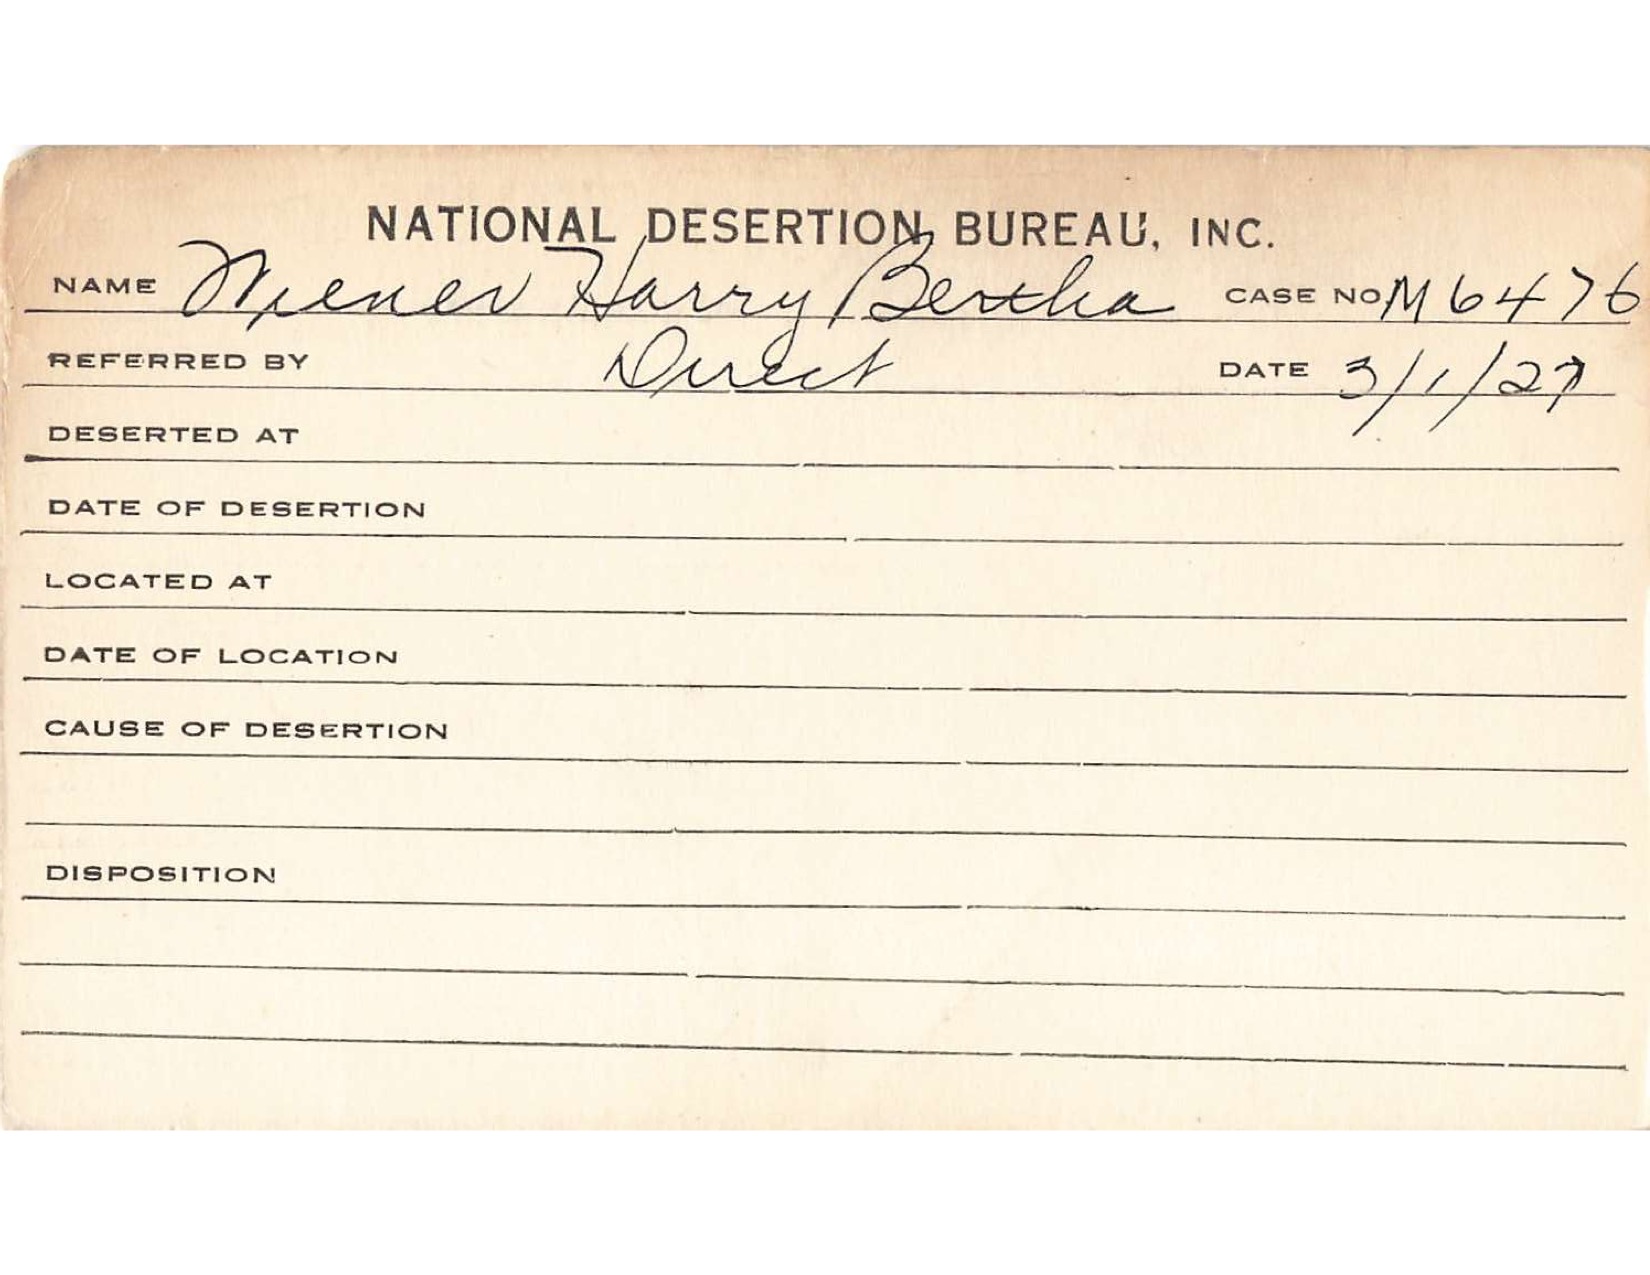 NATIONAL DESERTION BUREAU, INC.
NAME Wiener Harry Bertha CASE NO. M6476
REFERRED BY Direct DATE 3/1/27
DESERTED AT
DATE OF DESERTION
LOCATED AT
DATE OF LOCATION
CAUSE OF DESERTION
DISPOSITION